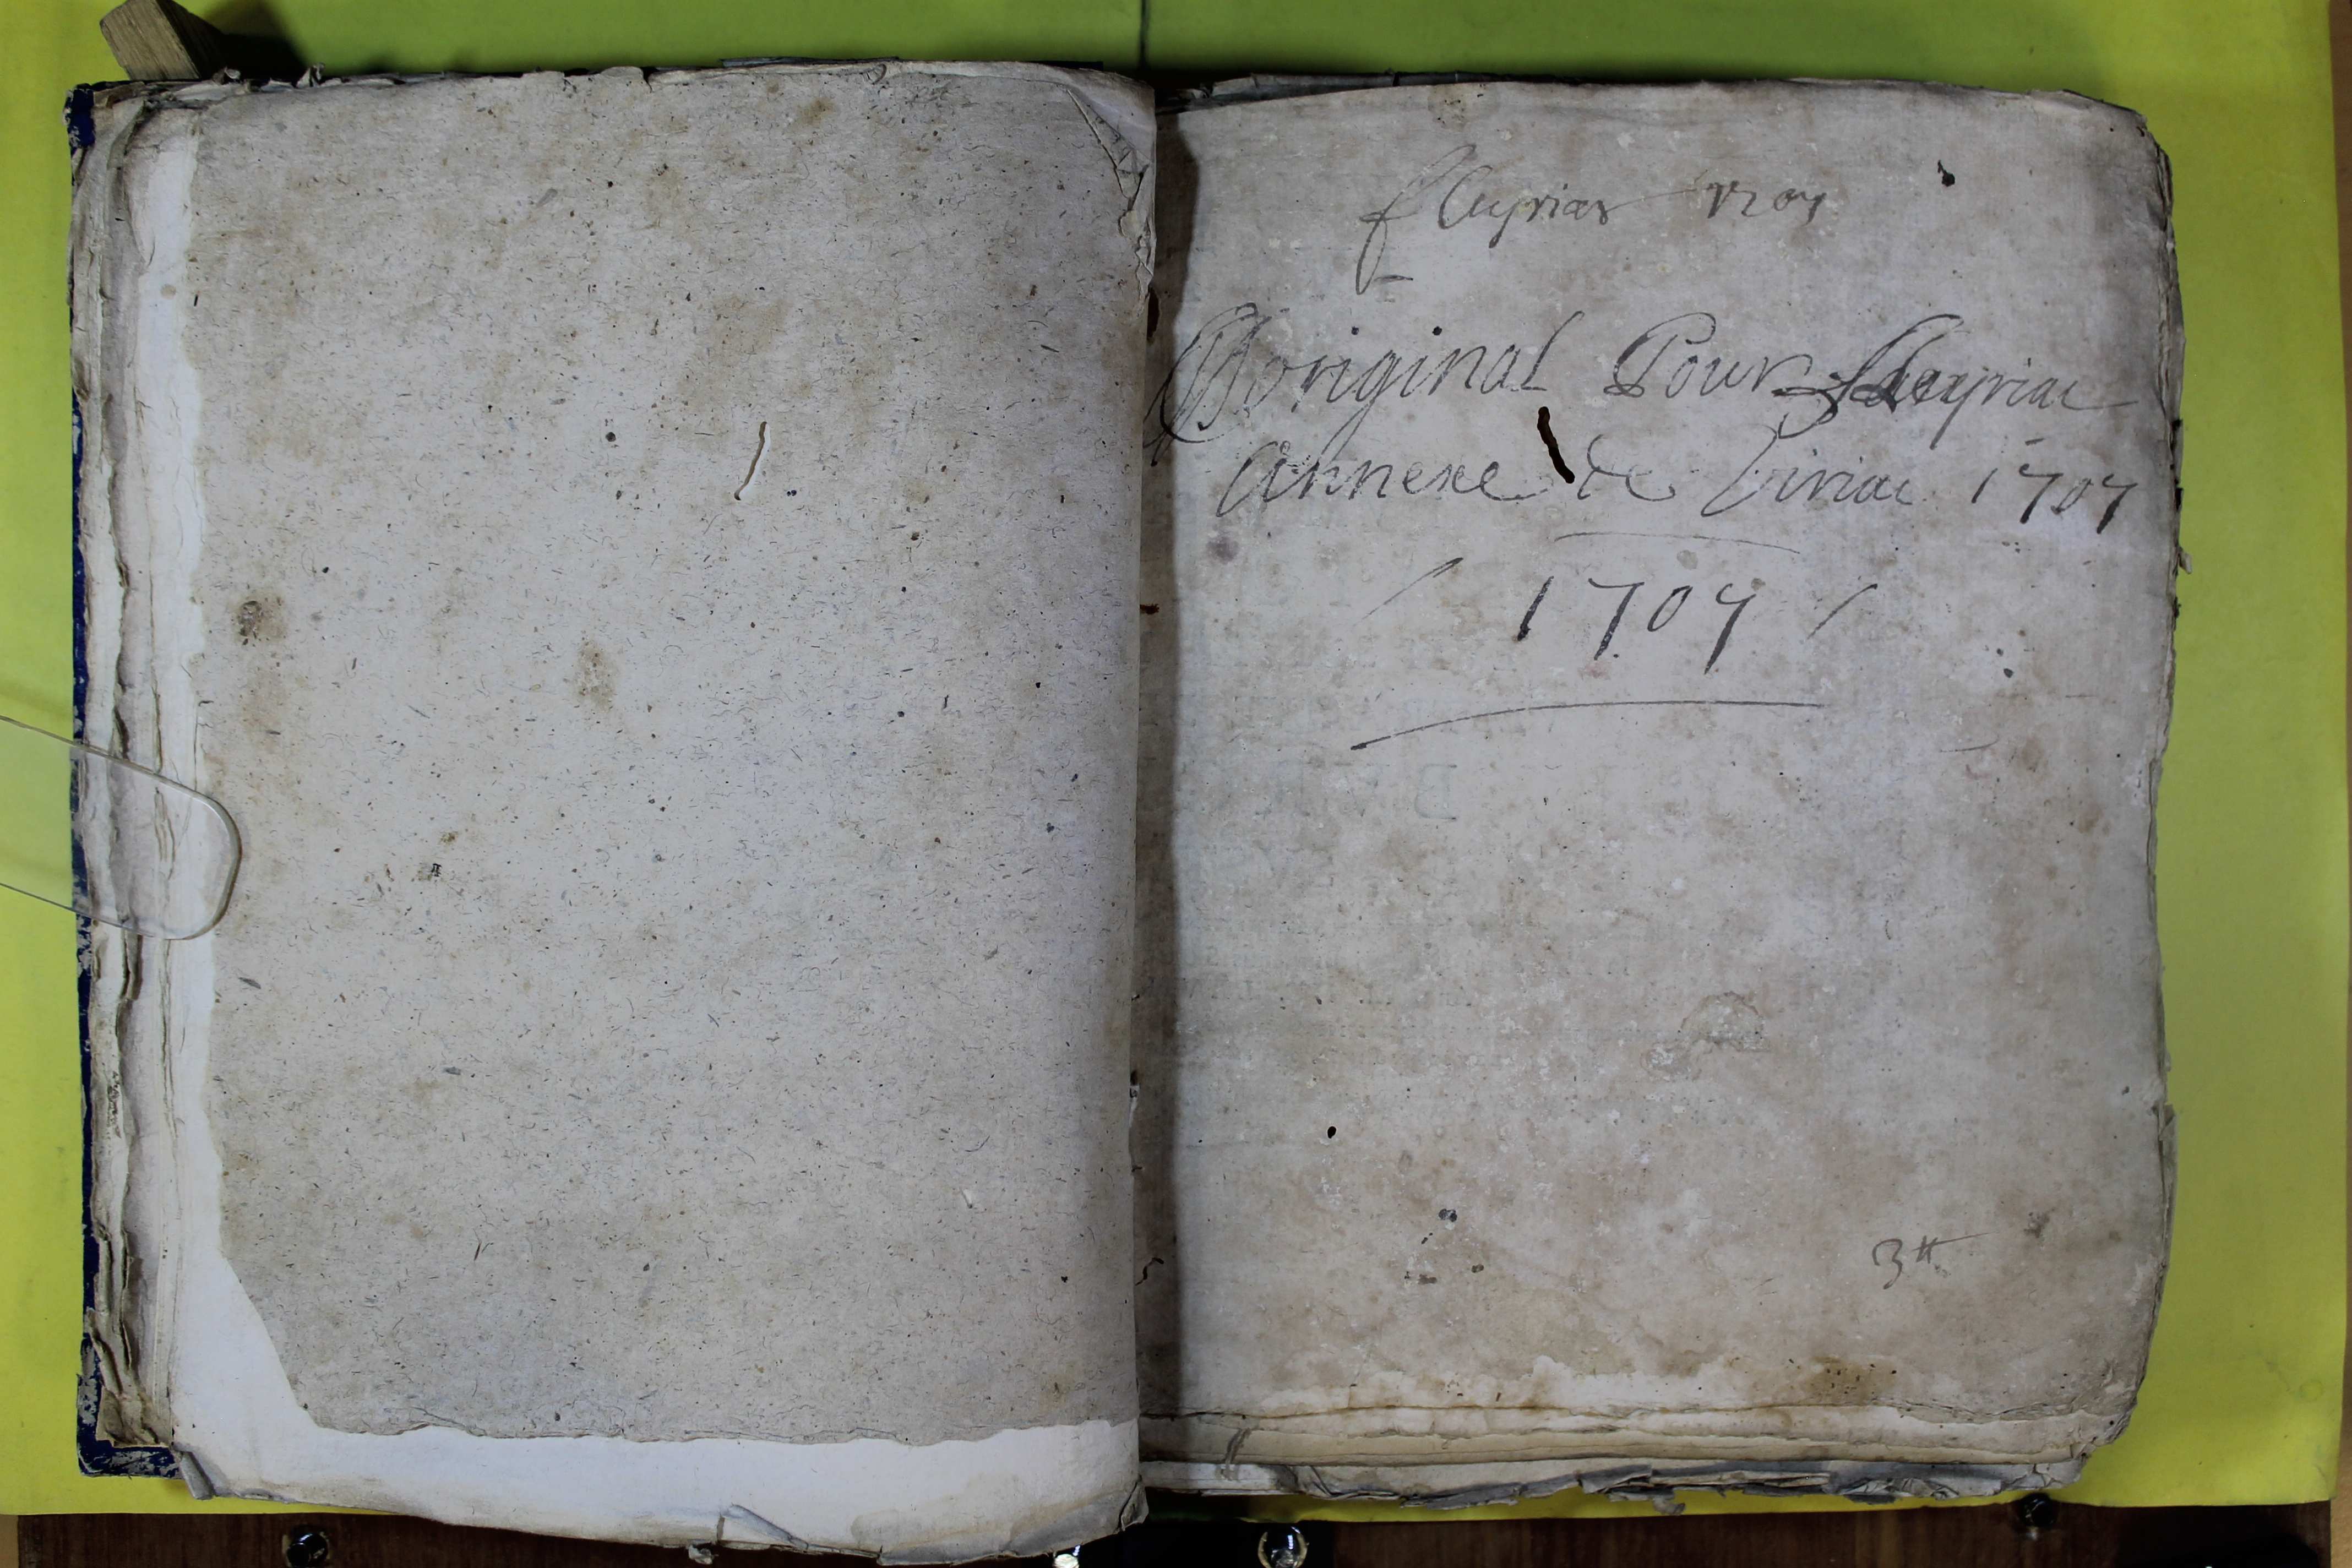 fleyriac
original Pour fleyriac
Annexe de 1707
1707
3#